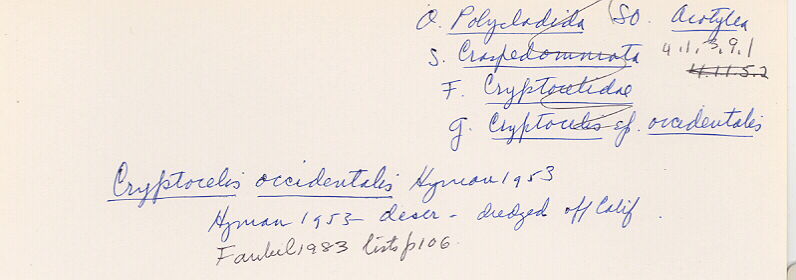 O. Polycladida (SO. Acotylea
S. Craspedommata 4.1.3.9.1
4.11.5.2
F. Cryptocelidae
g. Cryptocelis sp. occidentalis
Cryptocelis occidentalis Hyman 1953
Hyman 1953 - descr - dredged off Calif.
Faubel 1983 lists p106.